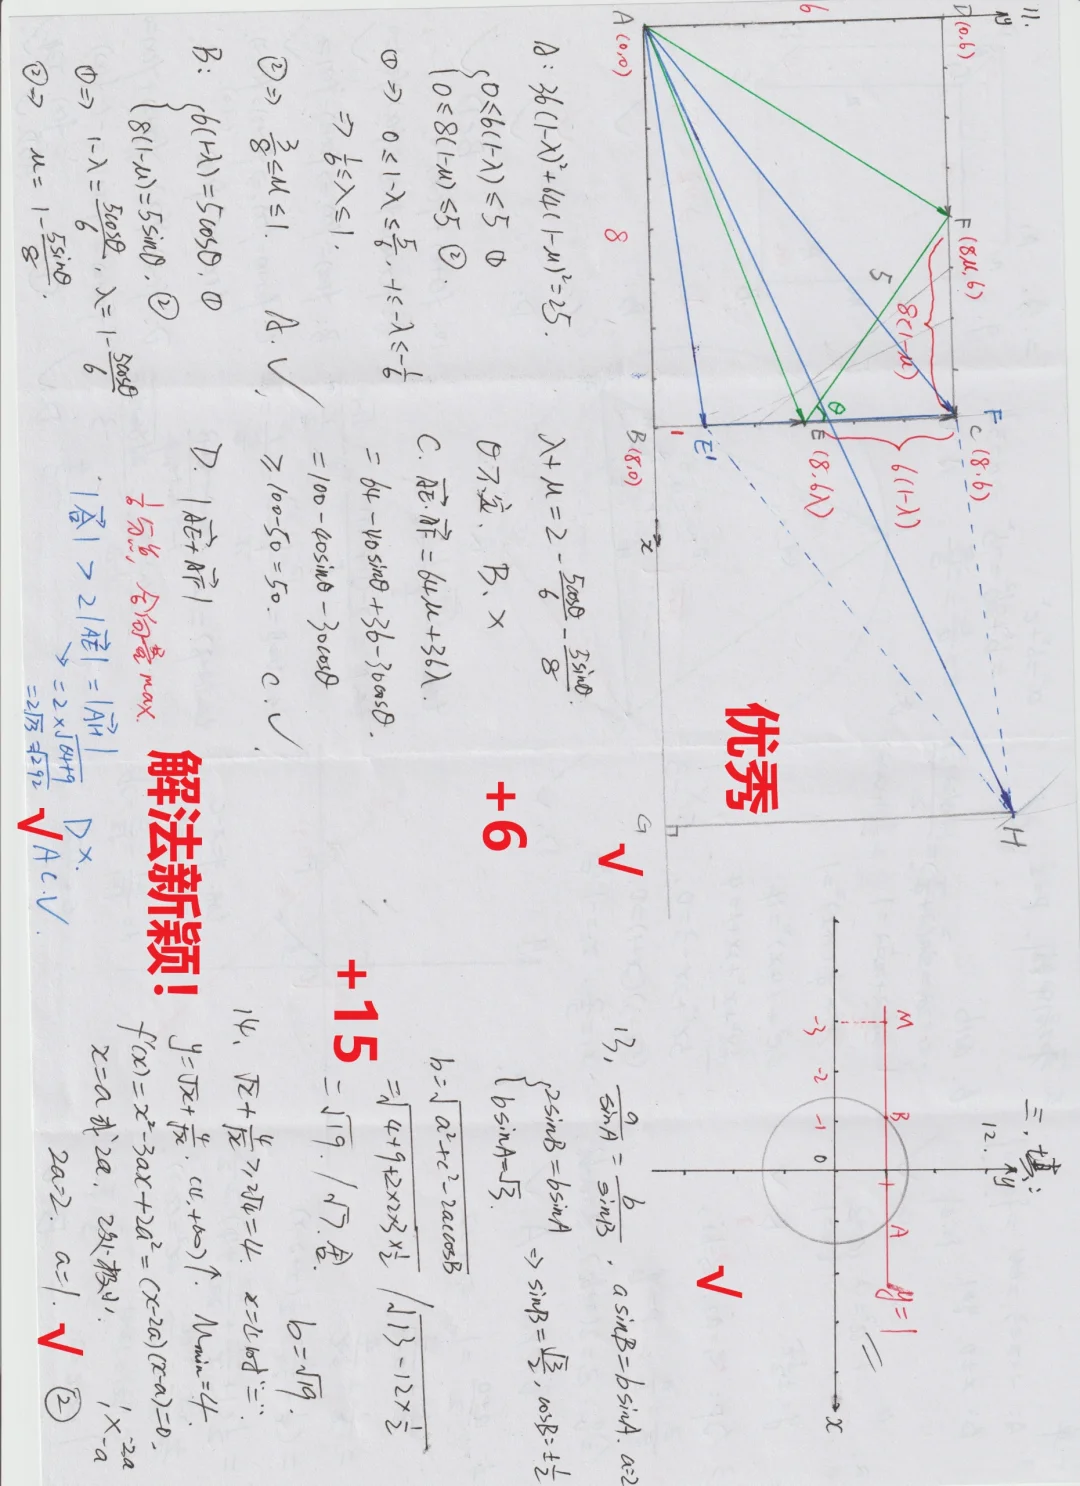 11.
y
D(0,6)
F(8μ,6)
F
C(8,6)
6
5
8(1-μ)
θ
6(1-λ)
A(0,0)
8
B(8,0)
1
E'
E(8,6λ)
x
G
H
A: 36(1-λ)²+64(1-μ)²=25.
{0≤6(1-λ)≤5 ①
0≤8(1-μ)≤5 ②.
①⇒ 0≤1-λ≤5/6, -1≤-λ≤-1/6
⇒ 1/6≤λ≤1.
②⇒ 3/8≤μ≤1. A.√
B: {6(1-λ)=5cosθ. ①
8(1-μ)=5sinθ. ②
①⇒ 1-λ=5cosθ/6, λ=1-5cosθ/6
②⇒ μ=1-5sinθ/8.
λ+μ=2-5cosθ/6-5sinθ/8.
θ不定. B.×
C. AE·AF=64μ+36λ.
=64-40sinθ+36-30cosθ.
=100-40sinθ-30cosθ
≥100-50=50. C.√
D. |AE+AF|
1/6分点, 合向量max.
|AG|>2|AE|=|AH|
=2×√64+9
=2√73=√292
D×.
AC.√
优秀
+6
√
解法新颖！
√
三、填:
12.
y
M
B
A
y=1
-3
-2
-1
0
1
x
13, a/sinA=b/sinB. asinB=bsinA. a=2
{2sinB=bsinA
bsinA=√3.
⇒ sinB=√3/2, cosB=±1/2
b=√a²+c²-2accosB
=√4+9+2×2×3×1/2 /√13-12×1/2
=√19. /√7.舍.
b=√19.
√
+15
14、√x+4/√x≥2√4=4. x=4时"=".
y=√x+4/√x. (4,+∞)↑. Mmin=4.
f'(x)=x²-3ax+2a²=(x-2a)(x-a)=0.
x=a或2a. 2a=2. a=1.
1 -2a
1 × -a
②
√